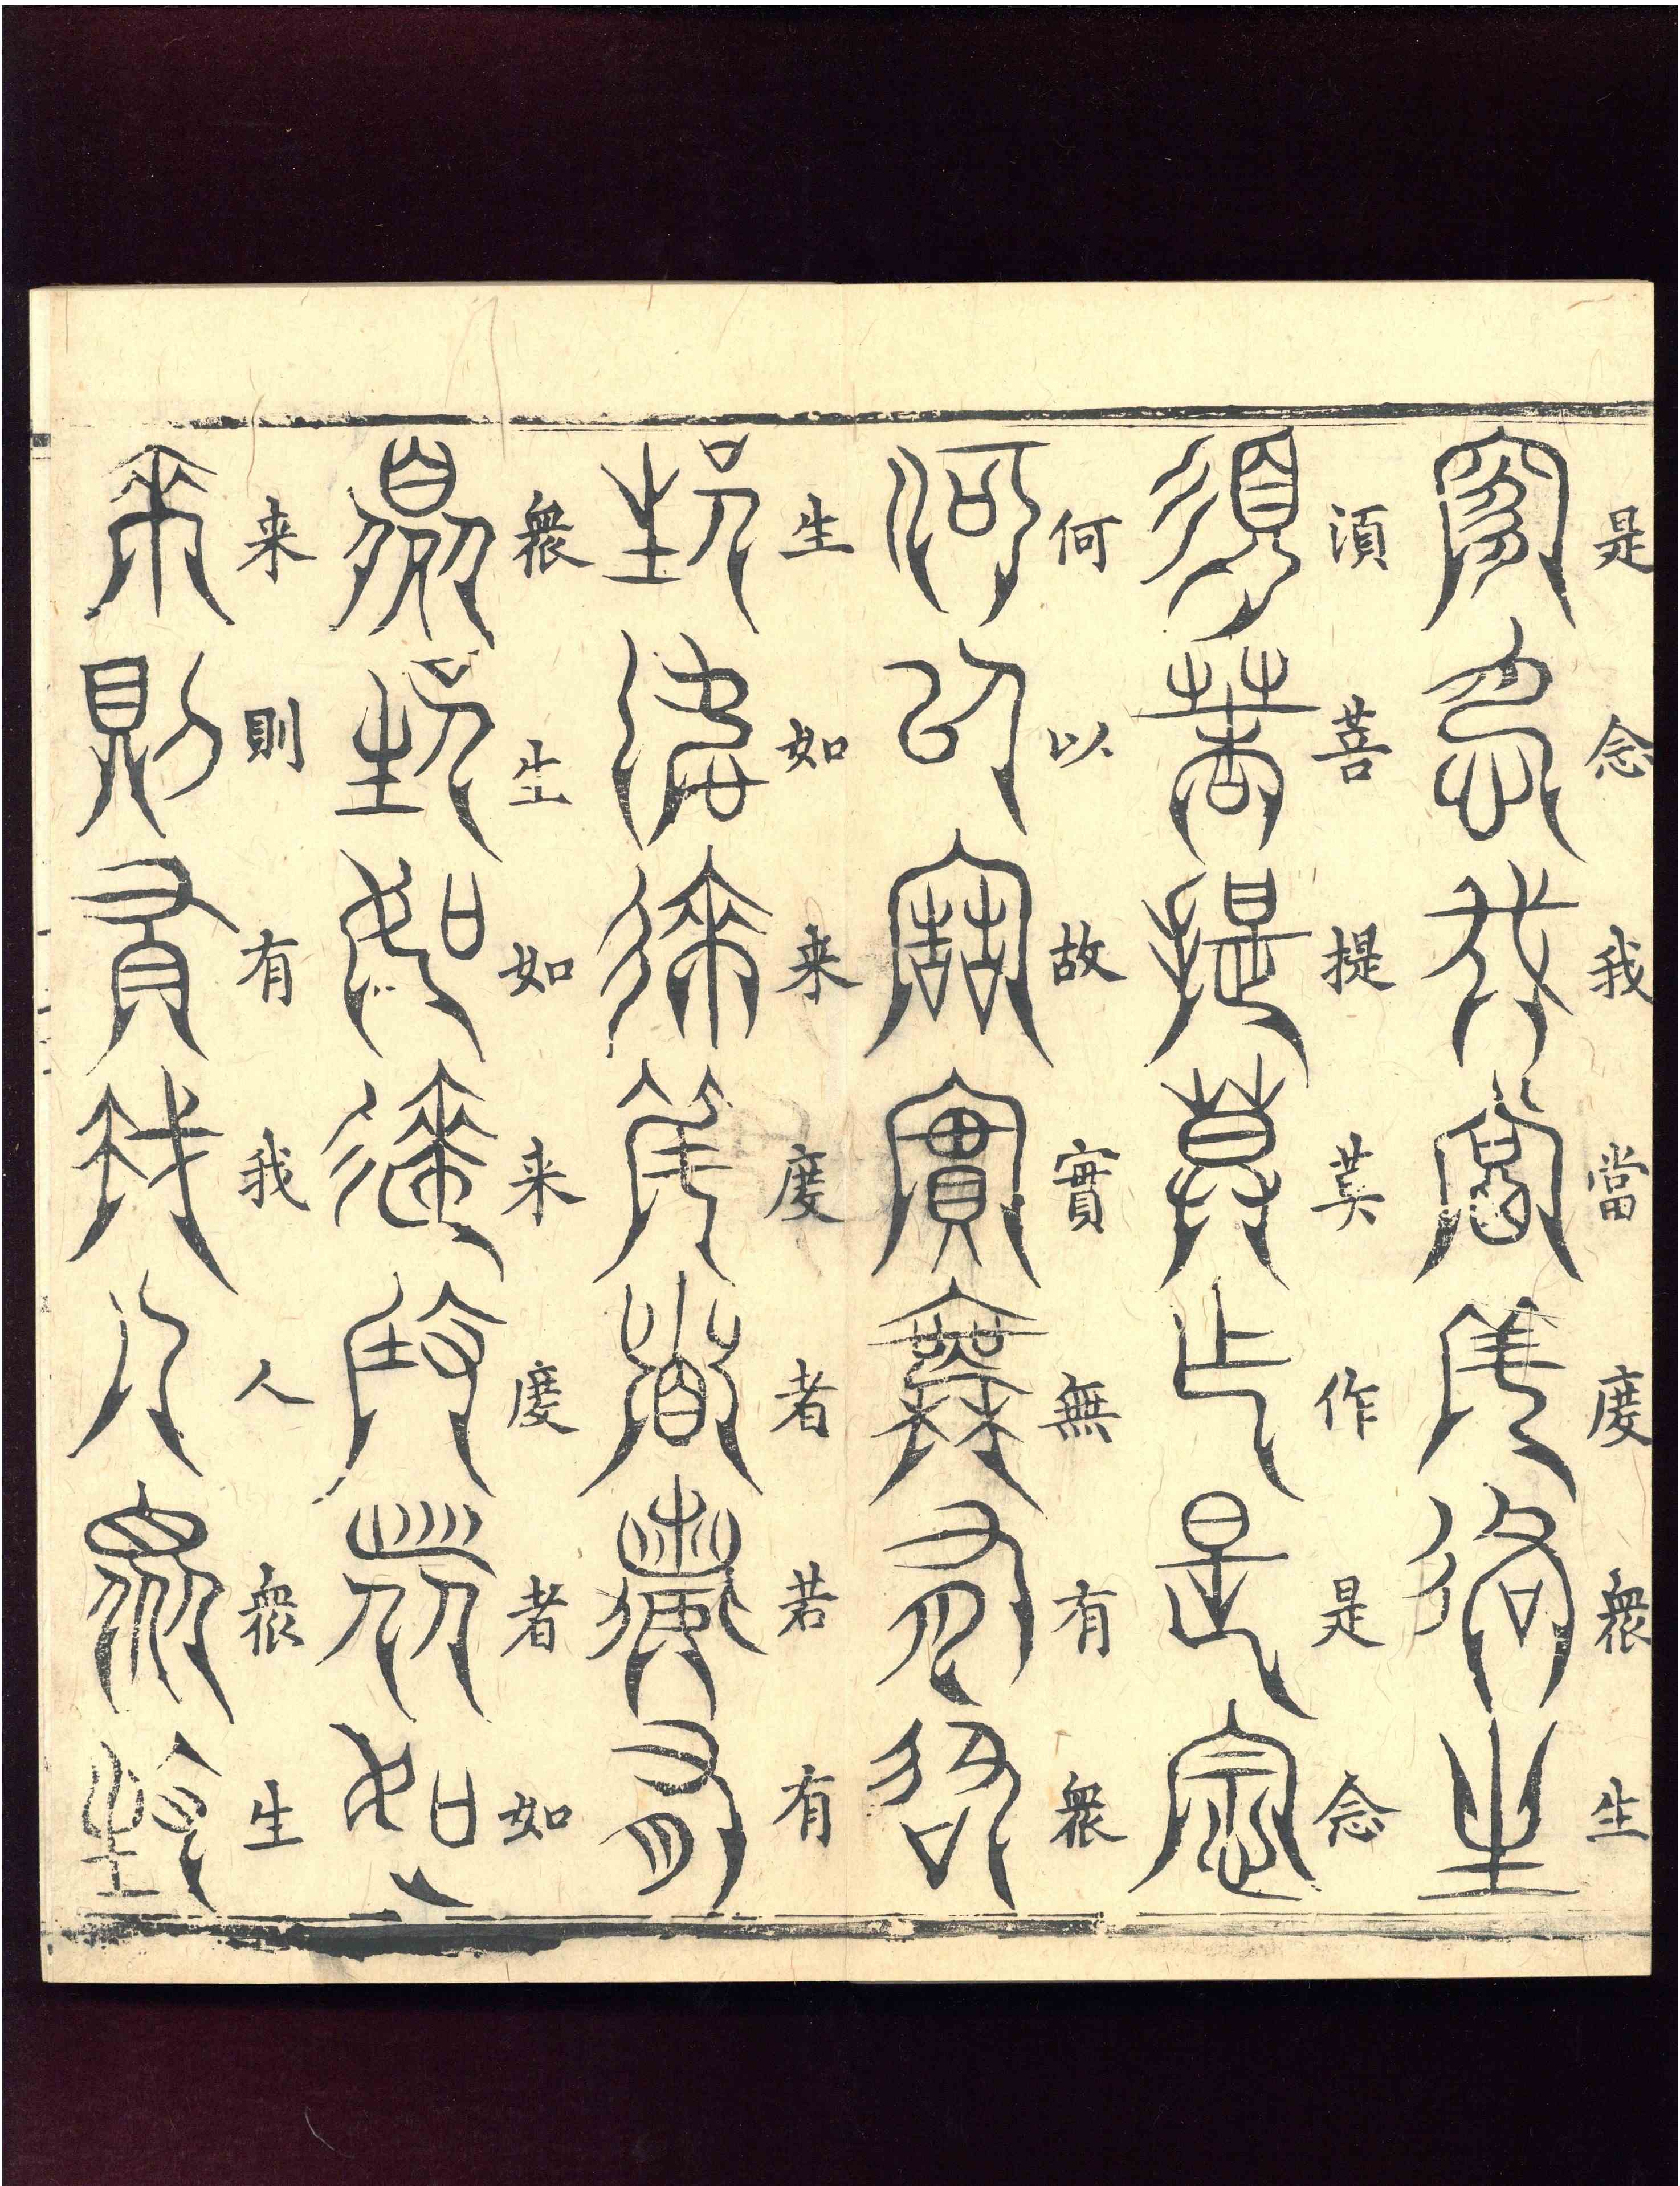 是念我當度衆生
湏菩提莫作是念
何以故實無有衆
生如来度者若有
衆生如来度者如
来則有我人衆生